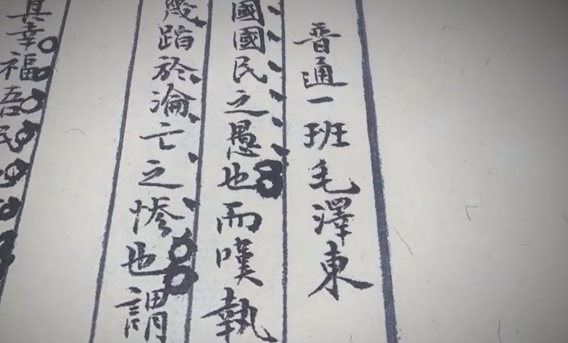 普通一班毛澤東
國國民之愚也而嘆執
幾蹈於淪亡之慘也謂
真幸福吾民